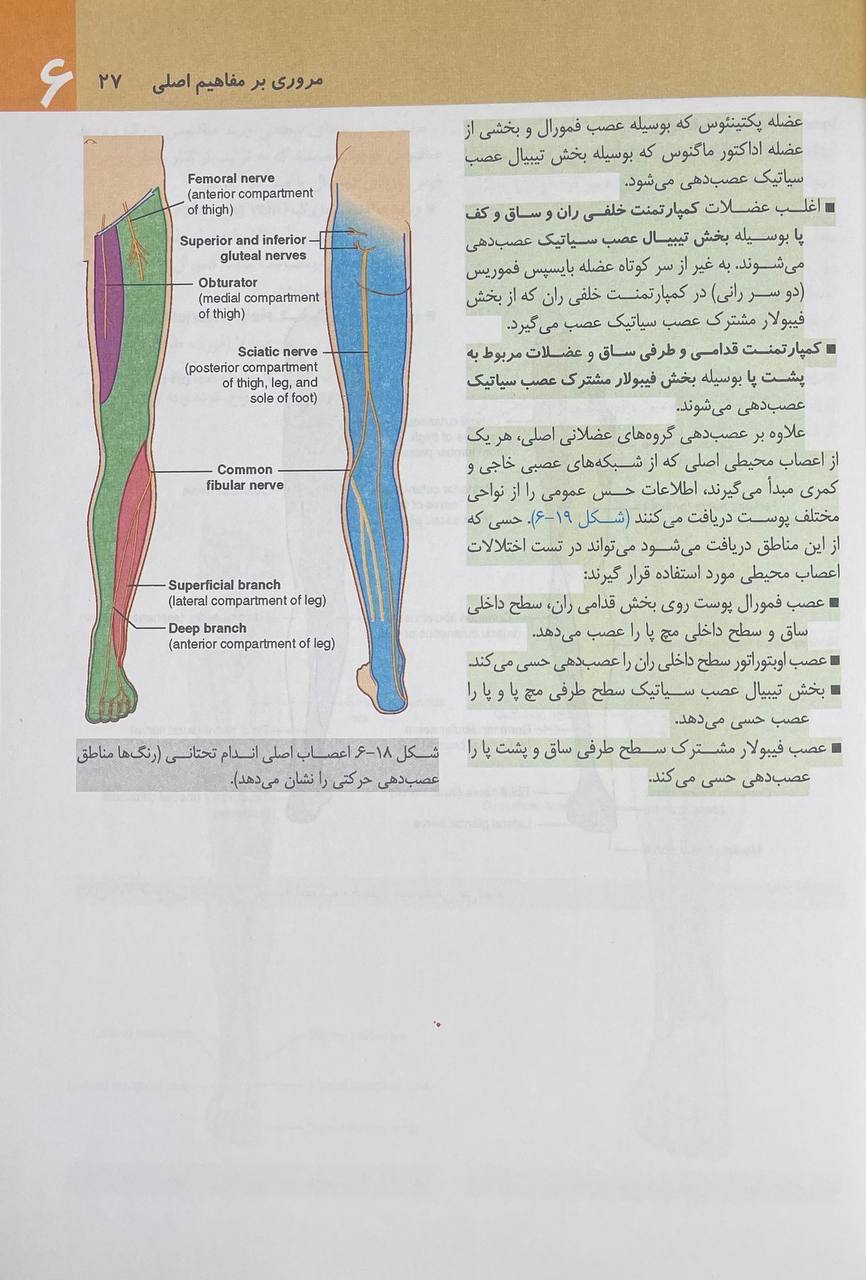 ۶
۲۷ مروری بر مفاهیم اصلی
عضله پکتینئوس که بوسیله عصب فمورال و بخشی از
عضله اداکتور ماگنوس که بوسیله بخش تیبیال عصب
سیاتیک عصب‌دهی می‌شود.
■ اغلب عضلات کمپارتمنت خلفی ران و ساق و کف
پا بوسیله بخش تیبیال عصب سیاتیک عصب‌دهی
می‌شوند. به غیر از سر کوتاه عضله بایسپس فموریس
(دو سر رانی) در کمپارتمنت خلفی ران که از بخش
فیبولار مشترک عصب سیاتیک عصب می‌گیرد.
■ کمپارتمنت قدامی و طرفی ساق و عضلات مربوط به
پشت پا بوسیله بخش فیبولار مشترک عصب سیاتیک
عصب‌دهی می‌شوند.
علاوه بر عصب‌دهی گروه‌های عضلانی اصلی، هر یک
از اعصاب محیطی اصلی که از شبکه‌های عصبی خاجی و
کمری مبدأ می‌گیرند، اطلاعات حس عمومی را از نواحی
مختلف پوست دریافت می‌کنند (شکل ۱۹-۶). حسی که
از این مناطق دریافت می‌شود می‌تواند در تست اختلالات
اعصاب محیطی مورد استفاده قرار گیرند:
■ عصب فمورال پوست روی بخش قدامی ران، سطح داخلی
ساق و سطح داخلی مچ پا را عصب می‌دهد.
■ عصب اوبتوراتور سطح داخلی ران را عصب‌دهی حسی می‌کند.
■ بخش تیبیال عصب سیاتیک سطح طرفی مچ پا و پا را
عصب حسی می‌دهد.
■ عصب فیبولار مشترک سطح طرفی ساق و پشت پا را
عصب‌دهی حسی می‌کند.
Femoral nerve
(anterior compartment
of thigh)
Superior and inferior
gluteal nerves
Obturator
(medial compartment
of thigh)
Sciatic nerve
(posterior compartment
of thigh, leg, and
sole of foot)
Common
fibular nerve
Superficial branch
(lateral compartment of leg)
Deep branch
(anterior compartment of leg)
شکل ۱۸-۶. اعصاب اصلی اندام تحتانی (رنگ‌ها مناطق
عصب‌دهی حرکتی را نشان می‌دهد).